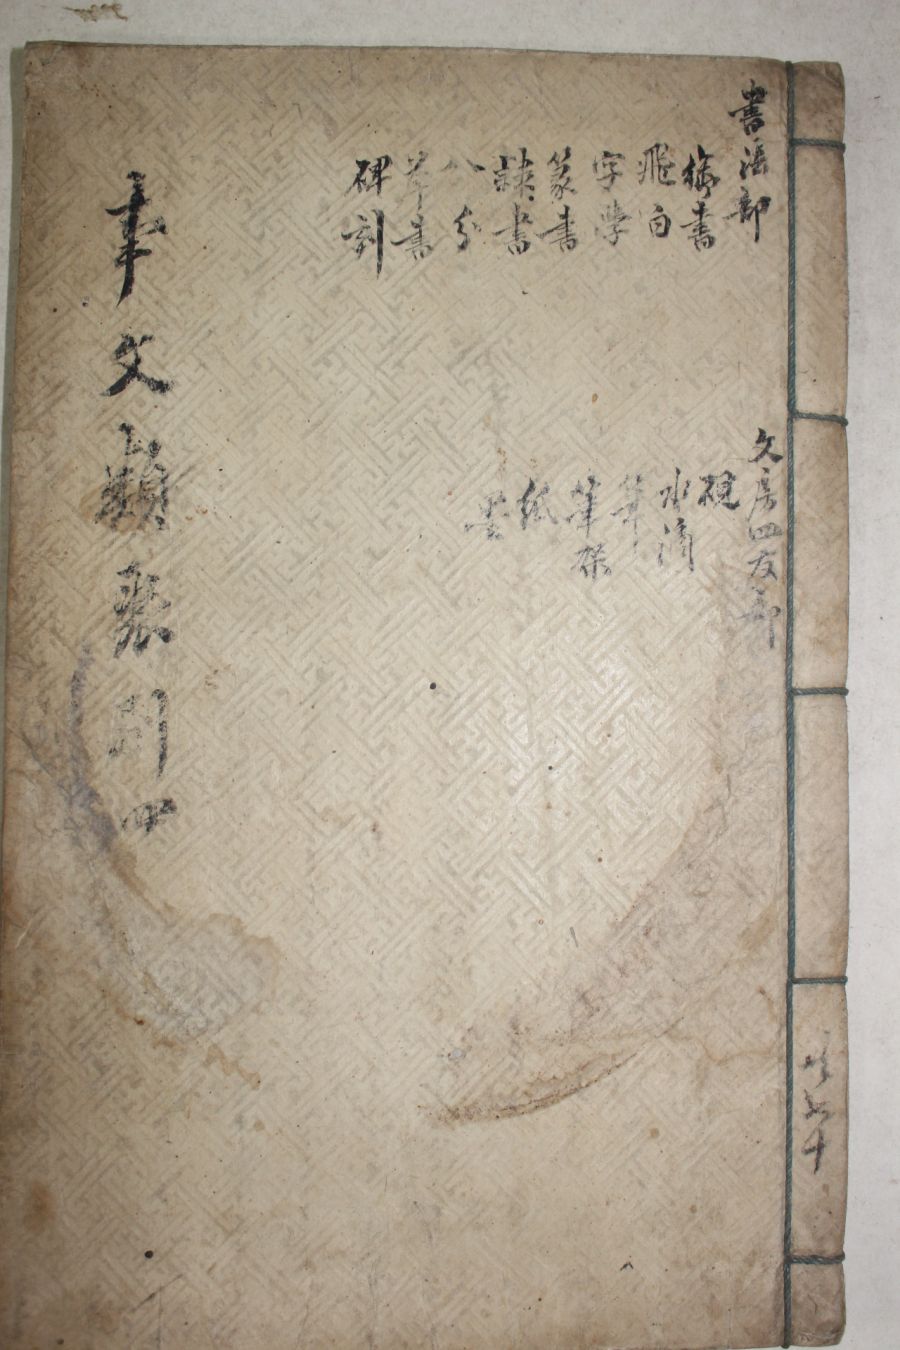 書法部
飛白
字學
篆書
隷書
八分
草書
碑刻
文房四友部
硯
水滴
筆
筆架
紙
墨
事文類聚別四
共七十